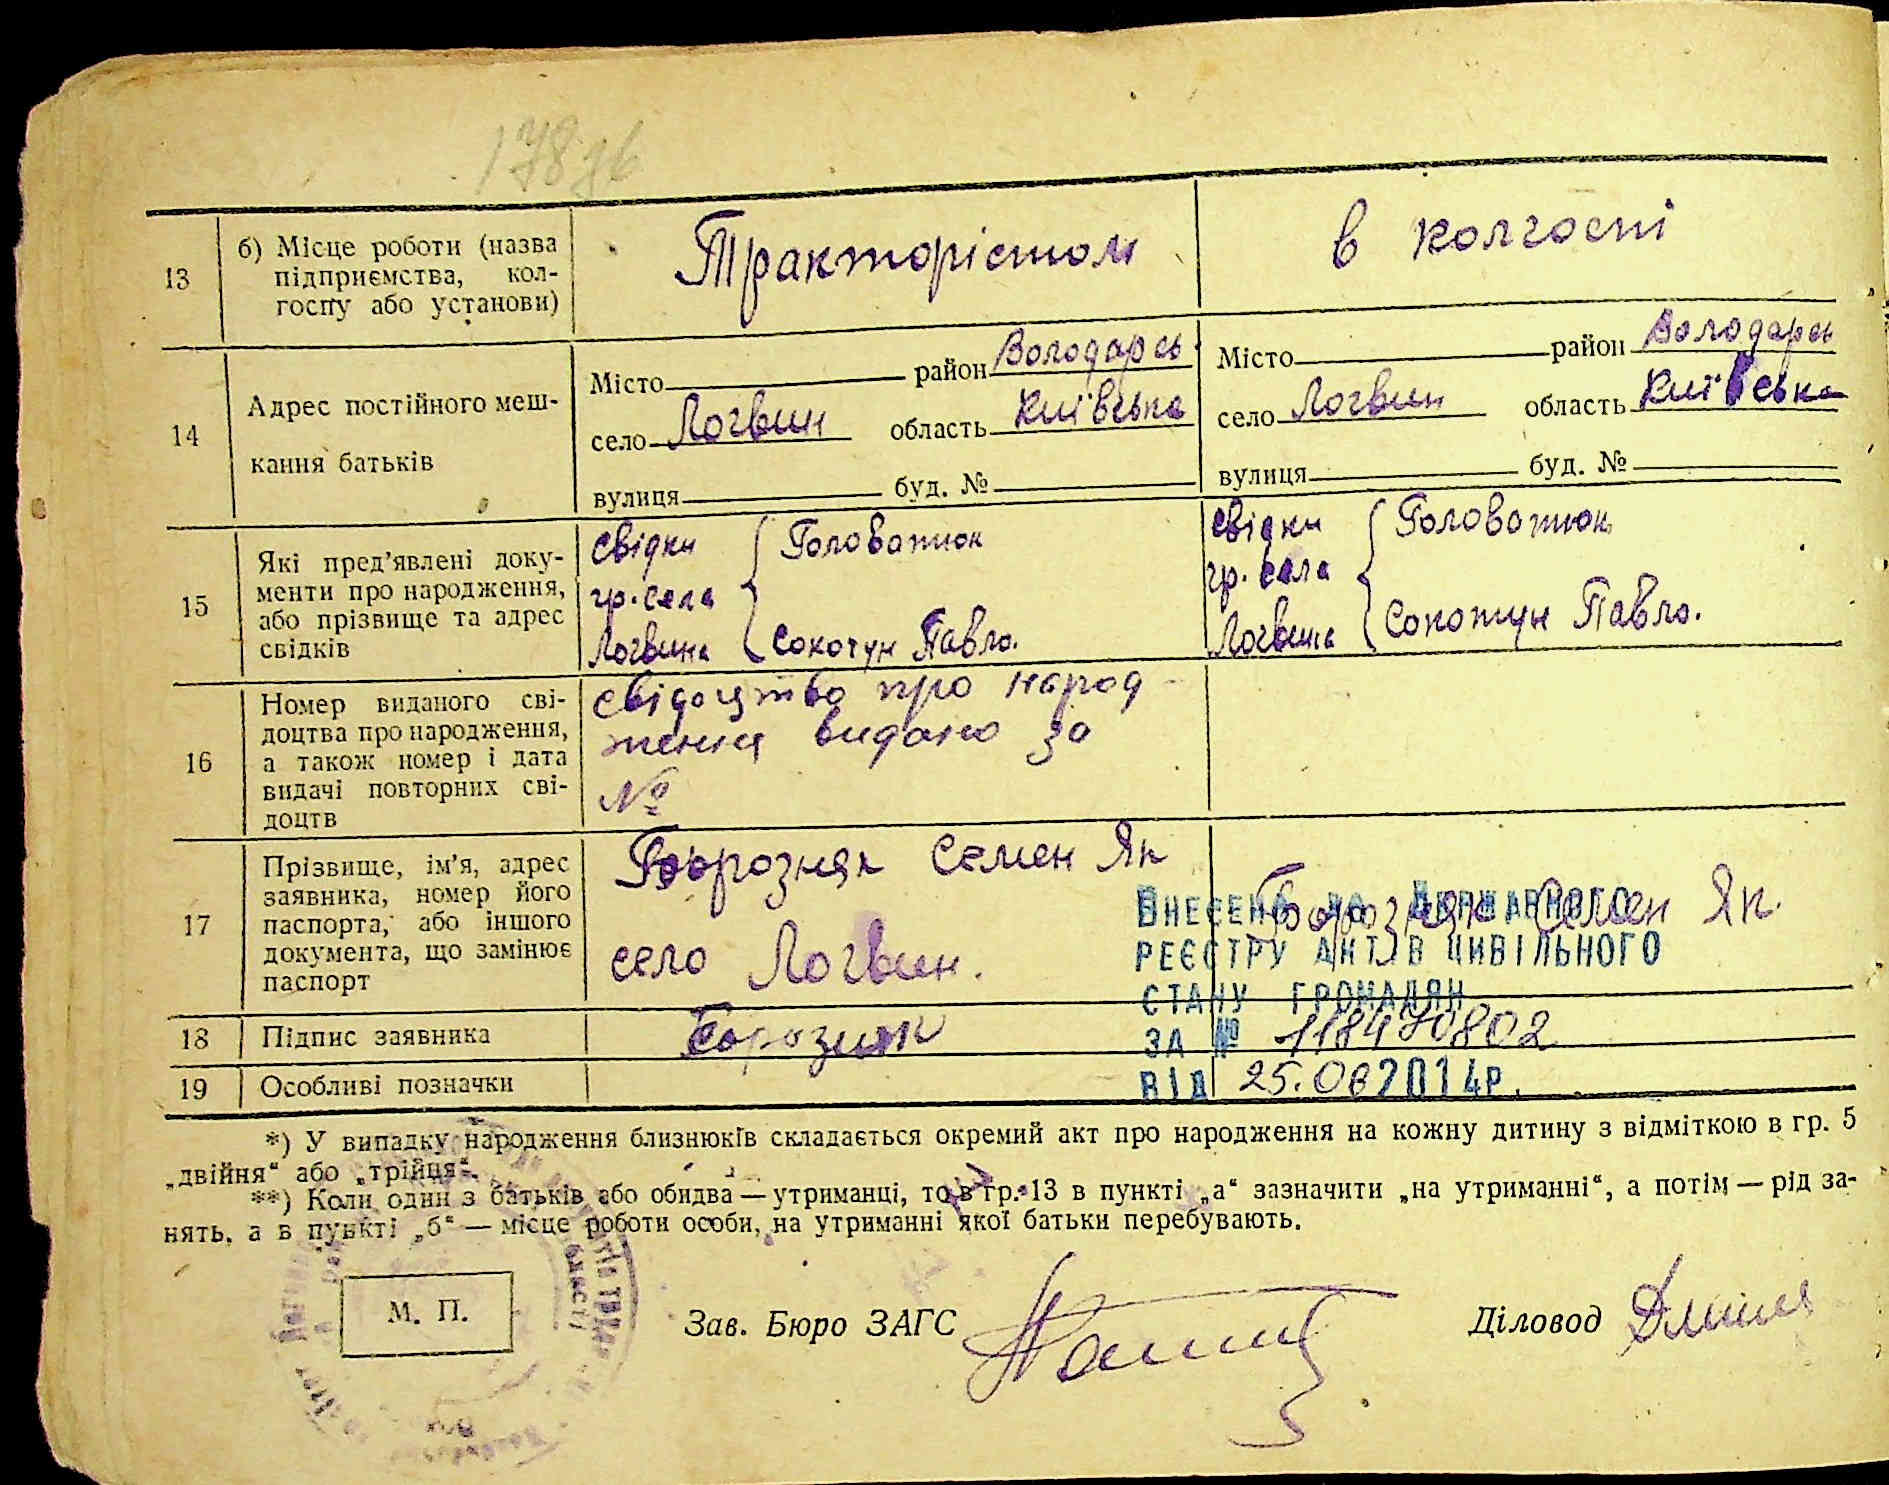 178 зв
13
б) Місце роботи (назва
підприємства, кол-
госпу або установи)
Трактористом
в колгоспі
14
Адрес постійного меш-
кання батьків
Місто район Володарсь
село Логвин область Київська
вулиця буд. №
Місто район Володарсь
село Логвин область Київська
вулиця буд. №
15
Які пред’явлені доку-
менти про народження,
або прізвище та адрес
свідків
Свідки
гр. села
Логвина
Головатюк
Сокотун Павло.
Свідки
гр. села
Логвина
Головатюк
Сокотун Павло.
16
Номер виданого сві-
доцтва про народження,
а також номер і дата
видачі повторних сві-
доцтв
Свідоцтво про народ-
ження видано за
№
17
Прізвище, ім’я, адрес
заявника, номер його
паспорта, або іншого
документа, що замінює
паспорт
Борозняк Семен Як
село Логвин.
Борозняк Семен Як.
Внесено до Державного
реєстру актів цивільного
стану громадян
за № 118470802
від 25.06 2014р.
18
Підпис заявника
Борозняк
19
Особливі позначки
*) У випадку народження близнюків складається окремий акт про народження на кожну дитину з відміткою в гр. 5
„двійня“ або „трійця“.
**) Коли один з батьків або обидва — утриманці, то в гр. 13 в пункті „а“ зазначити „на утриманні“, а потім — рід за-
нять, а в пункті „б“ — місце роботи особи, на утриманні якої батьки перебувають.
М. П.
Зав. Бюро ЗАГС
Діловод